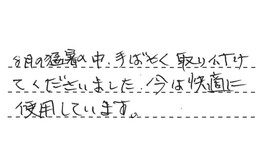 8月の猛暑の中、手ばやく取り付け
てくださいました。今は快適に
使用しています。